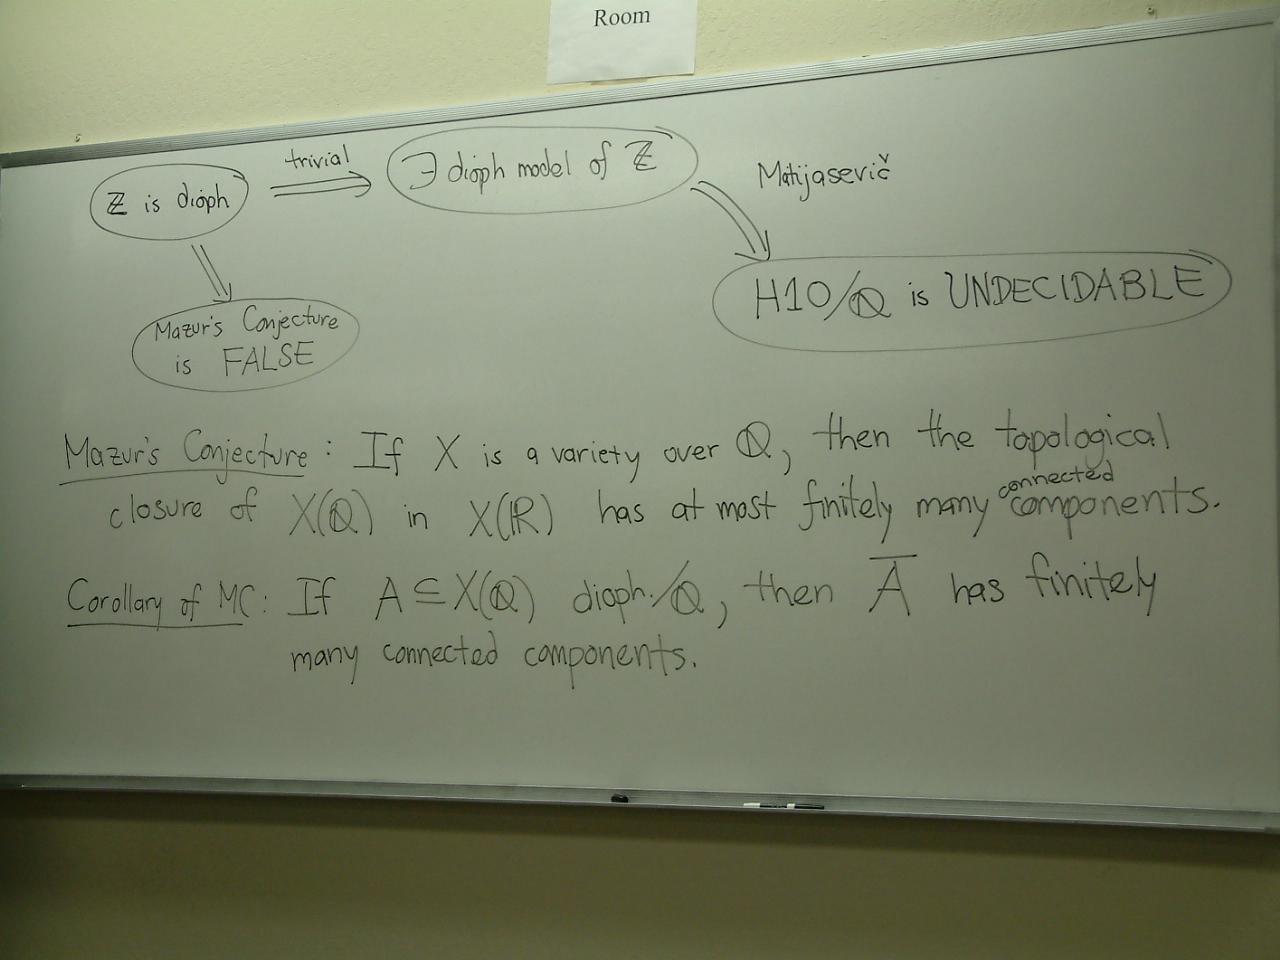 Room
trivial
ℤ is dioph ⟹ ∃ dioph model of ℤ
Matijasevič
H10/ℚ is UNDECIDABLE
Mazur's Conjecture
is FALSE
Mazur's Conjecture: If X is a variety over ℚ, then the topological
closure of X(ℚ) in X(ℝ) has at most finitely many connected components.
Corollary of MC: If A ⊆ X(ℚ) dioph./ℚ, then A̅ has finitely
many connected components.